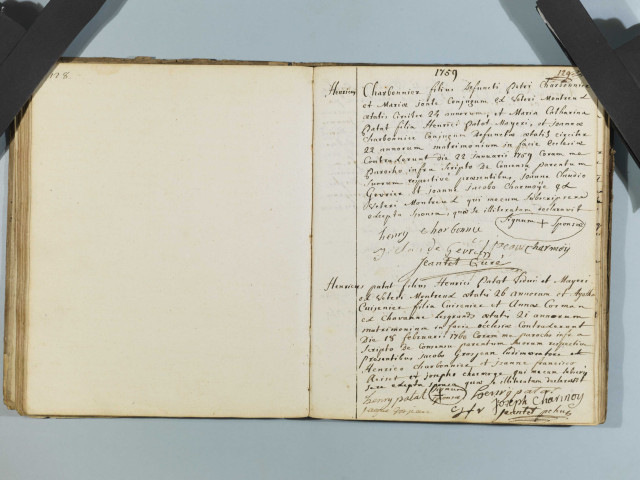 128.
1759
129
Henricus Charbonnier filius defuncti Petri Charbonnier
et Mariæ Conjugum ex Veteri Montreux
ætatis Circiter 24 annorum, et Maria Catharina
Patat filia Henrici Patat Mayeri, et Joannæ
Charbonnier Conjugum Defunctæ ætatis circiter
22 annorum matrimonium in facie Ecclesiæ
Contraxerunt die 22 Januarii 1759 Coram me
Parocho infra Scripto de Consensu parentum
Suorum respective præsentibus, Joanne Claudio
Gevrice et joanne jacobo Charmoÿe ex
Veteri Montreux qui mecum Subscripserunt
excepta Sponsa, quæ se illitteratam declaravit
Signum + Sponsæ
henry charbonnie
Charmoy
Jeantet Curé
Henricus patat filius Henrici Patat Vidui et Mayeri
ex Veteri Montreux ætatis 26 annorum et Agatha
Cuisenier filia Cuisenier et Annæ
ex Chavanne les grands ætatis 21 annorum
matrimonium in facie ecclesiæ Contraxerunt
Die 18 februarii 1760 Coram me parocho infra
Scripto De Consensu parentum Suorum respective
præsentibus Jacobo Grosjean et
Henrico Charbonnier et joanne francisco
et josepho charmoye qui mecum
excepta sponsa quæ se illiteratam declaravit
henry patat
Signum Sponsæ
henry patat
Joseph Charmoy
jeantet